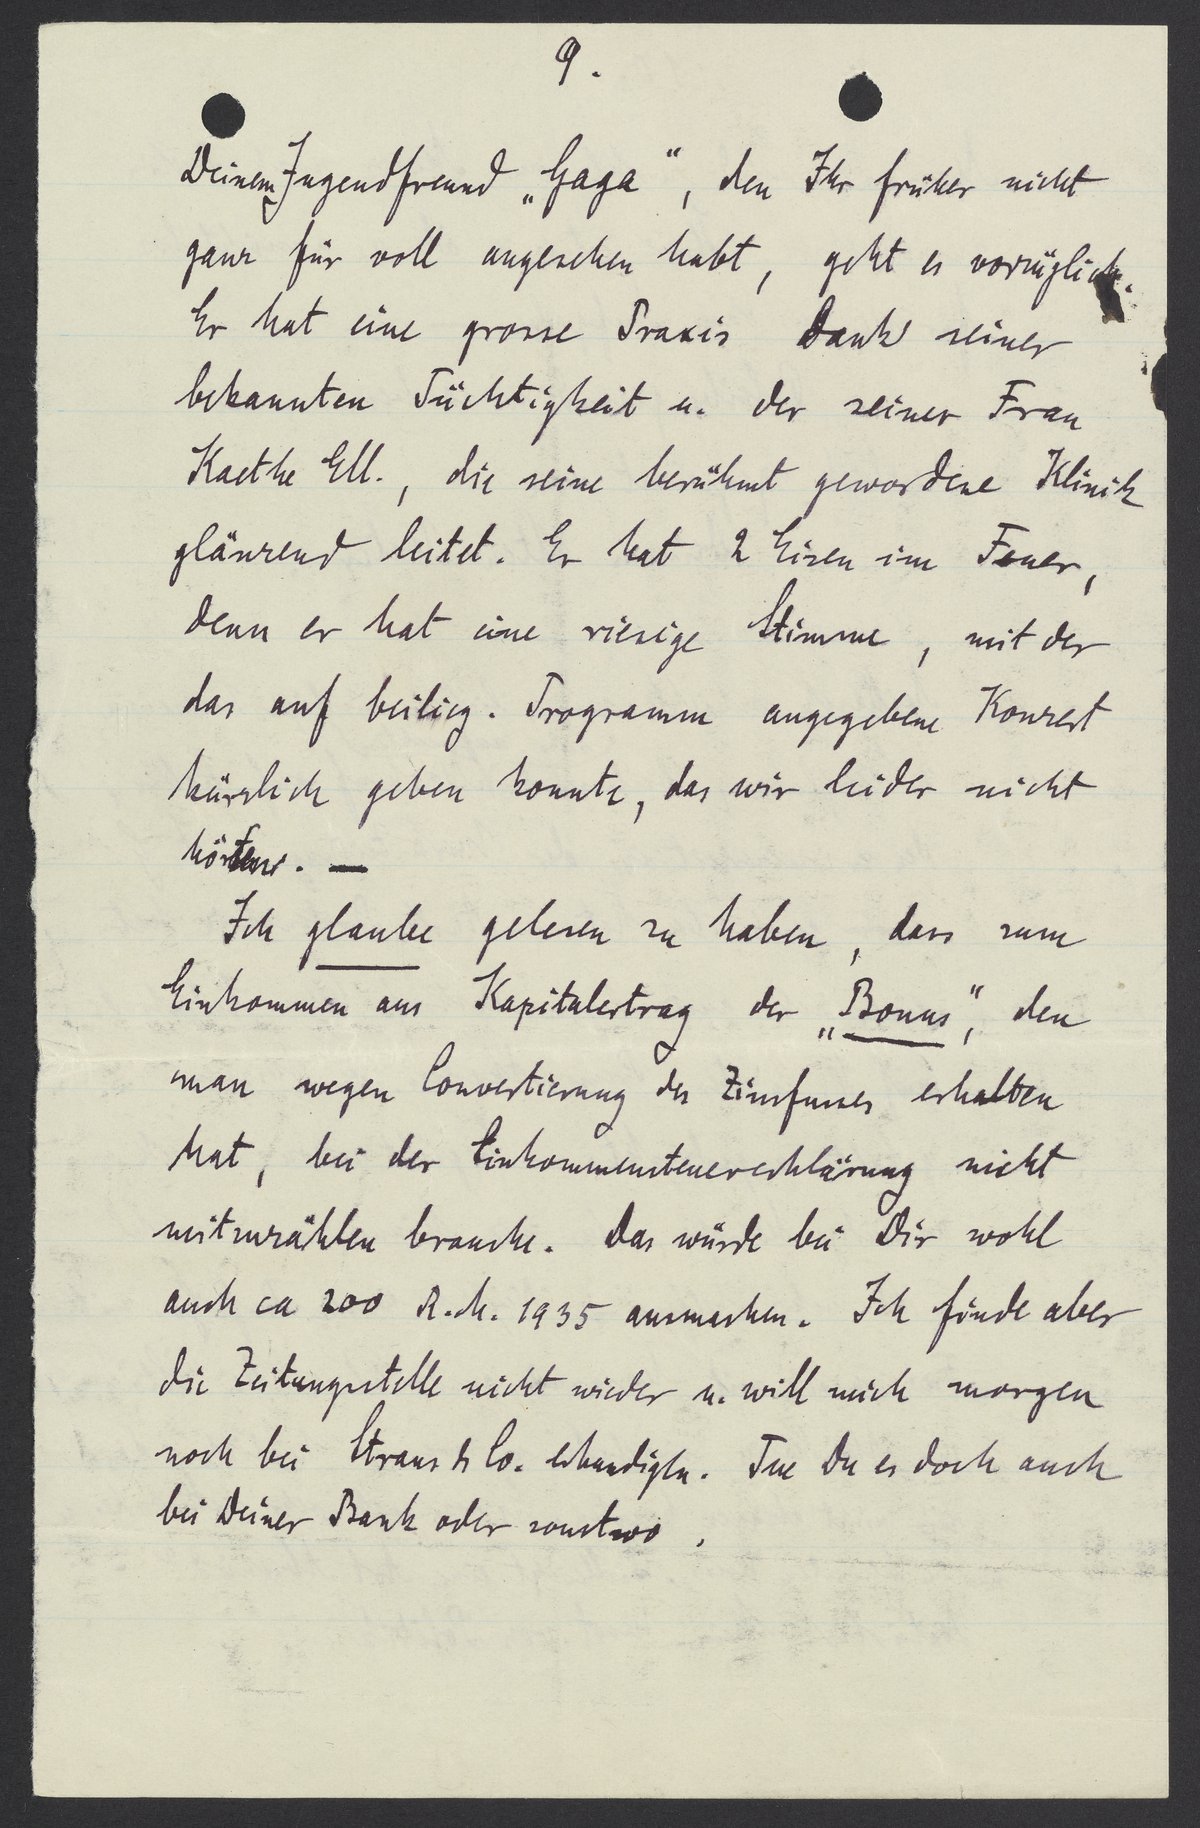 9.
Deinem Jugendfreund „Gaga“, den Ihr früher nicht
ganz für voll angesehen habt, geht es vorzüglich.
Er hat eine grosse Praxis dank seiner
bekannten Tüchtigkeit u. der seiner Frau
Kaethe Ell., die seine berühmt gewordene Klinik
glänzend leitet. Er hat 2 Eisen im Feuer,
denn er hat eine riesige Stimme, mit der
das auf beilieg. Programm angegebene Konzert
kürzlich geben konnte, das wir leider nicht
hörten. —
Ich glaube gelesen zu haben, dass zum
Einkommen aus Kapitalertrag der „Bonus“, den
man wegen Convertierung des Zinsfusses erhalten
hat, bei der Einkommensteuererklärung nicht
mitzuzählen brauche. Das würde bei Dir wohl
auch ca 200 R.M. 1935 ausmachen. Ich finde aber
die Zeitungsstelle nicht wieder u. will mich morgen
noch bei Straus & Co. erkundigen. Tue Du es doch auch
bei Deiner Bank oder sonstwo.